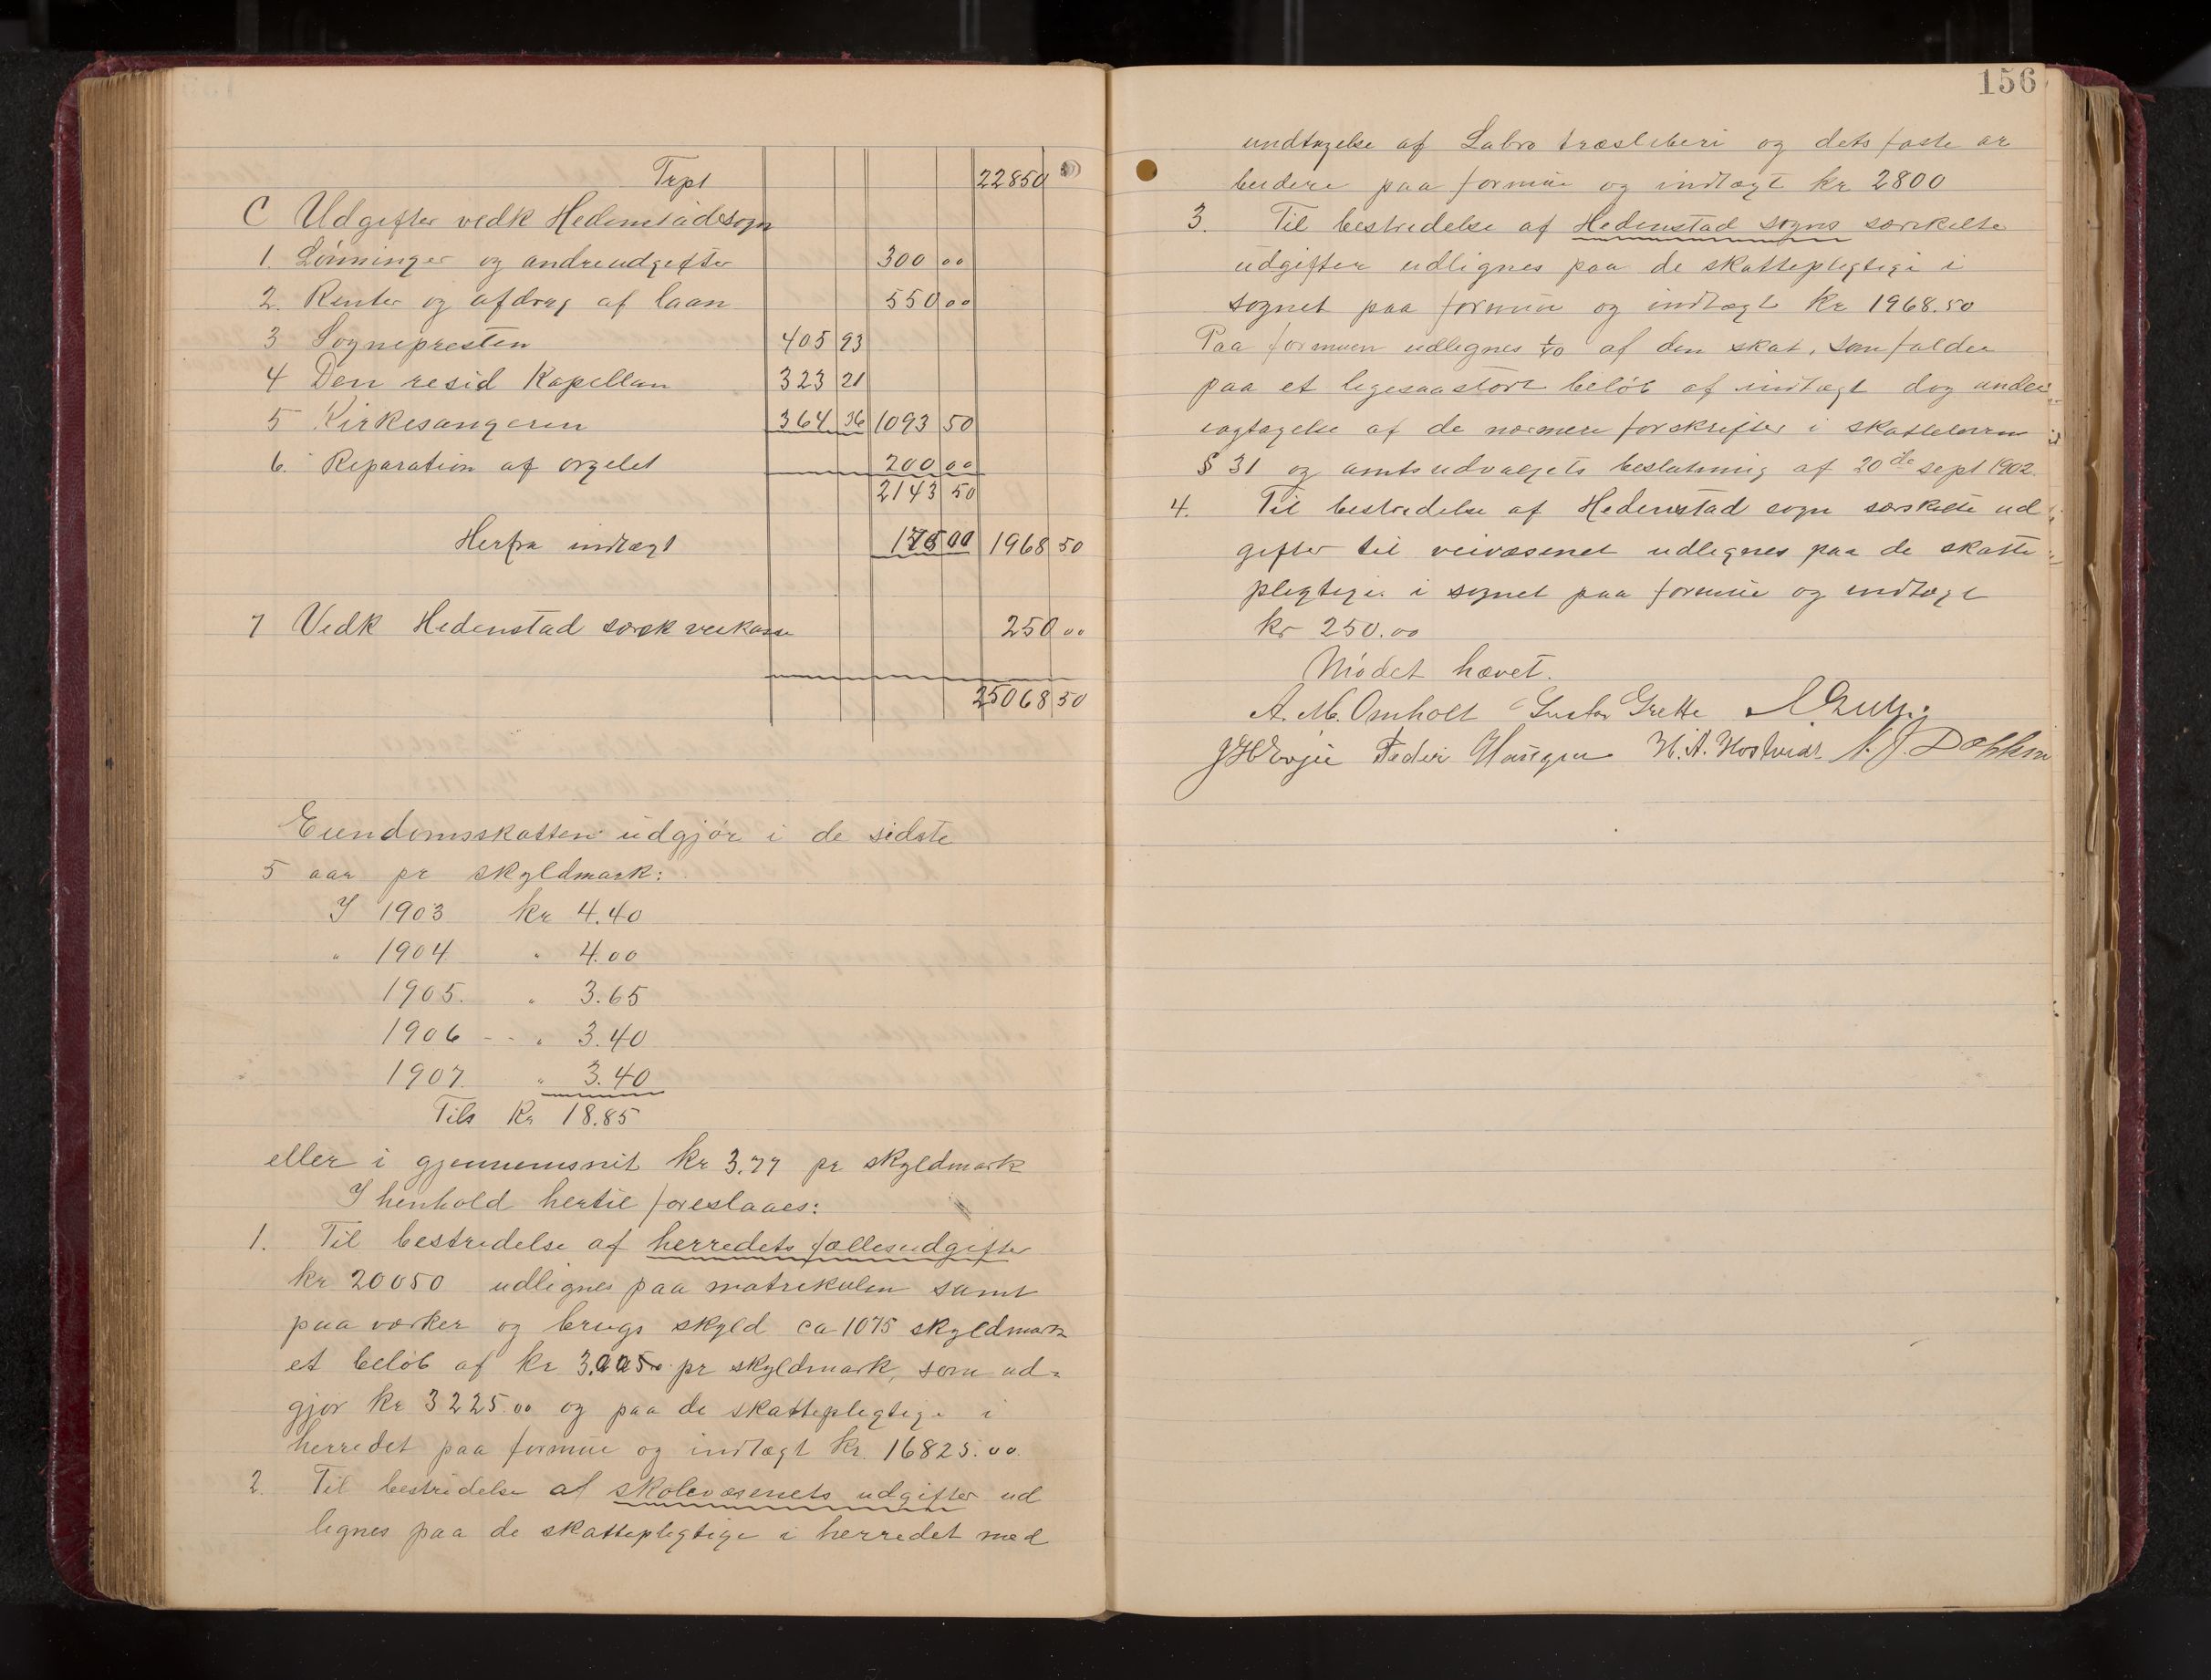 Trpt 22850
C Udgifter vedk Hedenstad sogn
1. Lønninger og andre udgifter 300 00
2. Renter og afdrag af laan 550 00
3 Sognepresten 405 93
4 Den resid Kapellan 323 21
5 Kirkesangeren 364 36 1093 50
6. Reparation af orgelet 200 00
2143 50
Herfra indtægt 175 00 1968 50
7 Vedk Hedenstad særsk veikasse 250 00
25068 50
Eiendomsskatten udgjør i de sidste
5 aar pr skyldmark:
I 1903 kr 4.40
" 1904 " 4.00
1905. " 3.65
1906 - - " 3.40
1907. " 3.40
Tils Kr 18.85
eller i gjennemsnit kr 3.77 pr skyldmark
I henhold hertil foreslaaes:
1. Til bestridelse af herredets fællesudgifter
kr 20050 udlignes paa matrikulen samt
paa værker og brugs skyld ca 1075 skyldmark
et beløb af kr pr skyldmark, som ud-
gjør kr 3225.00 og paa de skattepligtige i
herredet paa formue og indtægt kr. 16825.00.
2. Til bestridelse af skolevæsenets udgifter ud
lignes paa de skattepligtige i herredet med
156
undtagelse af Labro træsliberi og dets faste ar
beidere paa formue og indtægt kr 2800
3. Til bestridelse af Hedenstad sogns særskilte
udgifter udlignes paa de skattepligtige i
sognet paa formue og indtægt kr 1968.50
Paa formuen udlignes 1/10 af den skat, som falder
paa et ligesaastort beløb af indtægt dog under
iagtagelse af de nærmere forskrifter i skatteloven
§ 31 og amtsudvalgets beslutning af 20de sept 1902.
4. Til bestridelse af Hedenstad sogn særskilte ud
gifter til veivæsenet udlignes paa de skatte
pligtige i sognet paa formue og indtægt
kr 250.00
Mødet hævet.
A. M. Omholt Gustav Grette
J H Evju Peder Haugen H. A. Hostvedt